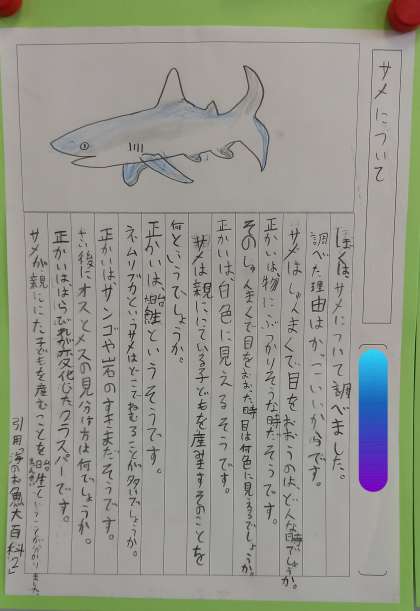 サメについて
ぼくは、サメについて調べました。
調べた理由はかっこいいからです。
サメはしゅんまくで目をおおうのは、どんな時でしょうか。
正かいは、物にぶつかりそうな時だそうです。
そのしゅんまくで目をおおった時目は何色に見えるでしょうか。
正かいは、白色に見えるそうです。
サメは親ににている子どもを産みますそのことを
何というでしょうか。
正かいは、胎生というそうです。
ネムリブカというサメはどこでねむることが多いでしょうか。
正かいはサンゴや岩のすきまだそうです。
さい後にオスとメスの見分け方は何でしょうか。
正かいははらびれが変化したクラスパーです。
サメが親ににた子どもを産むことを胎生ということがわかりました。
引用「海のお魚大百科2」